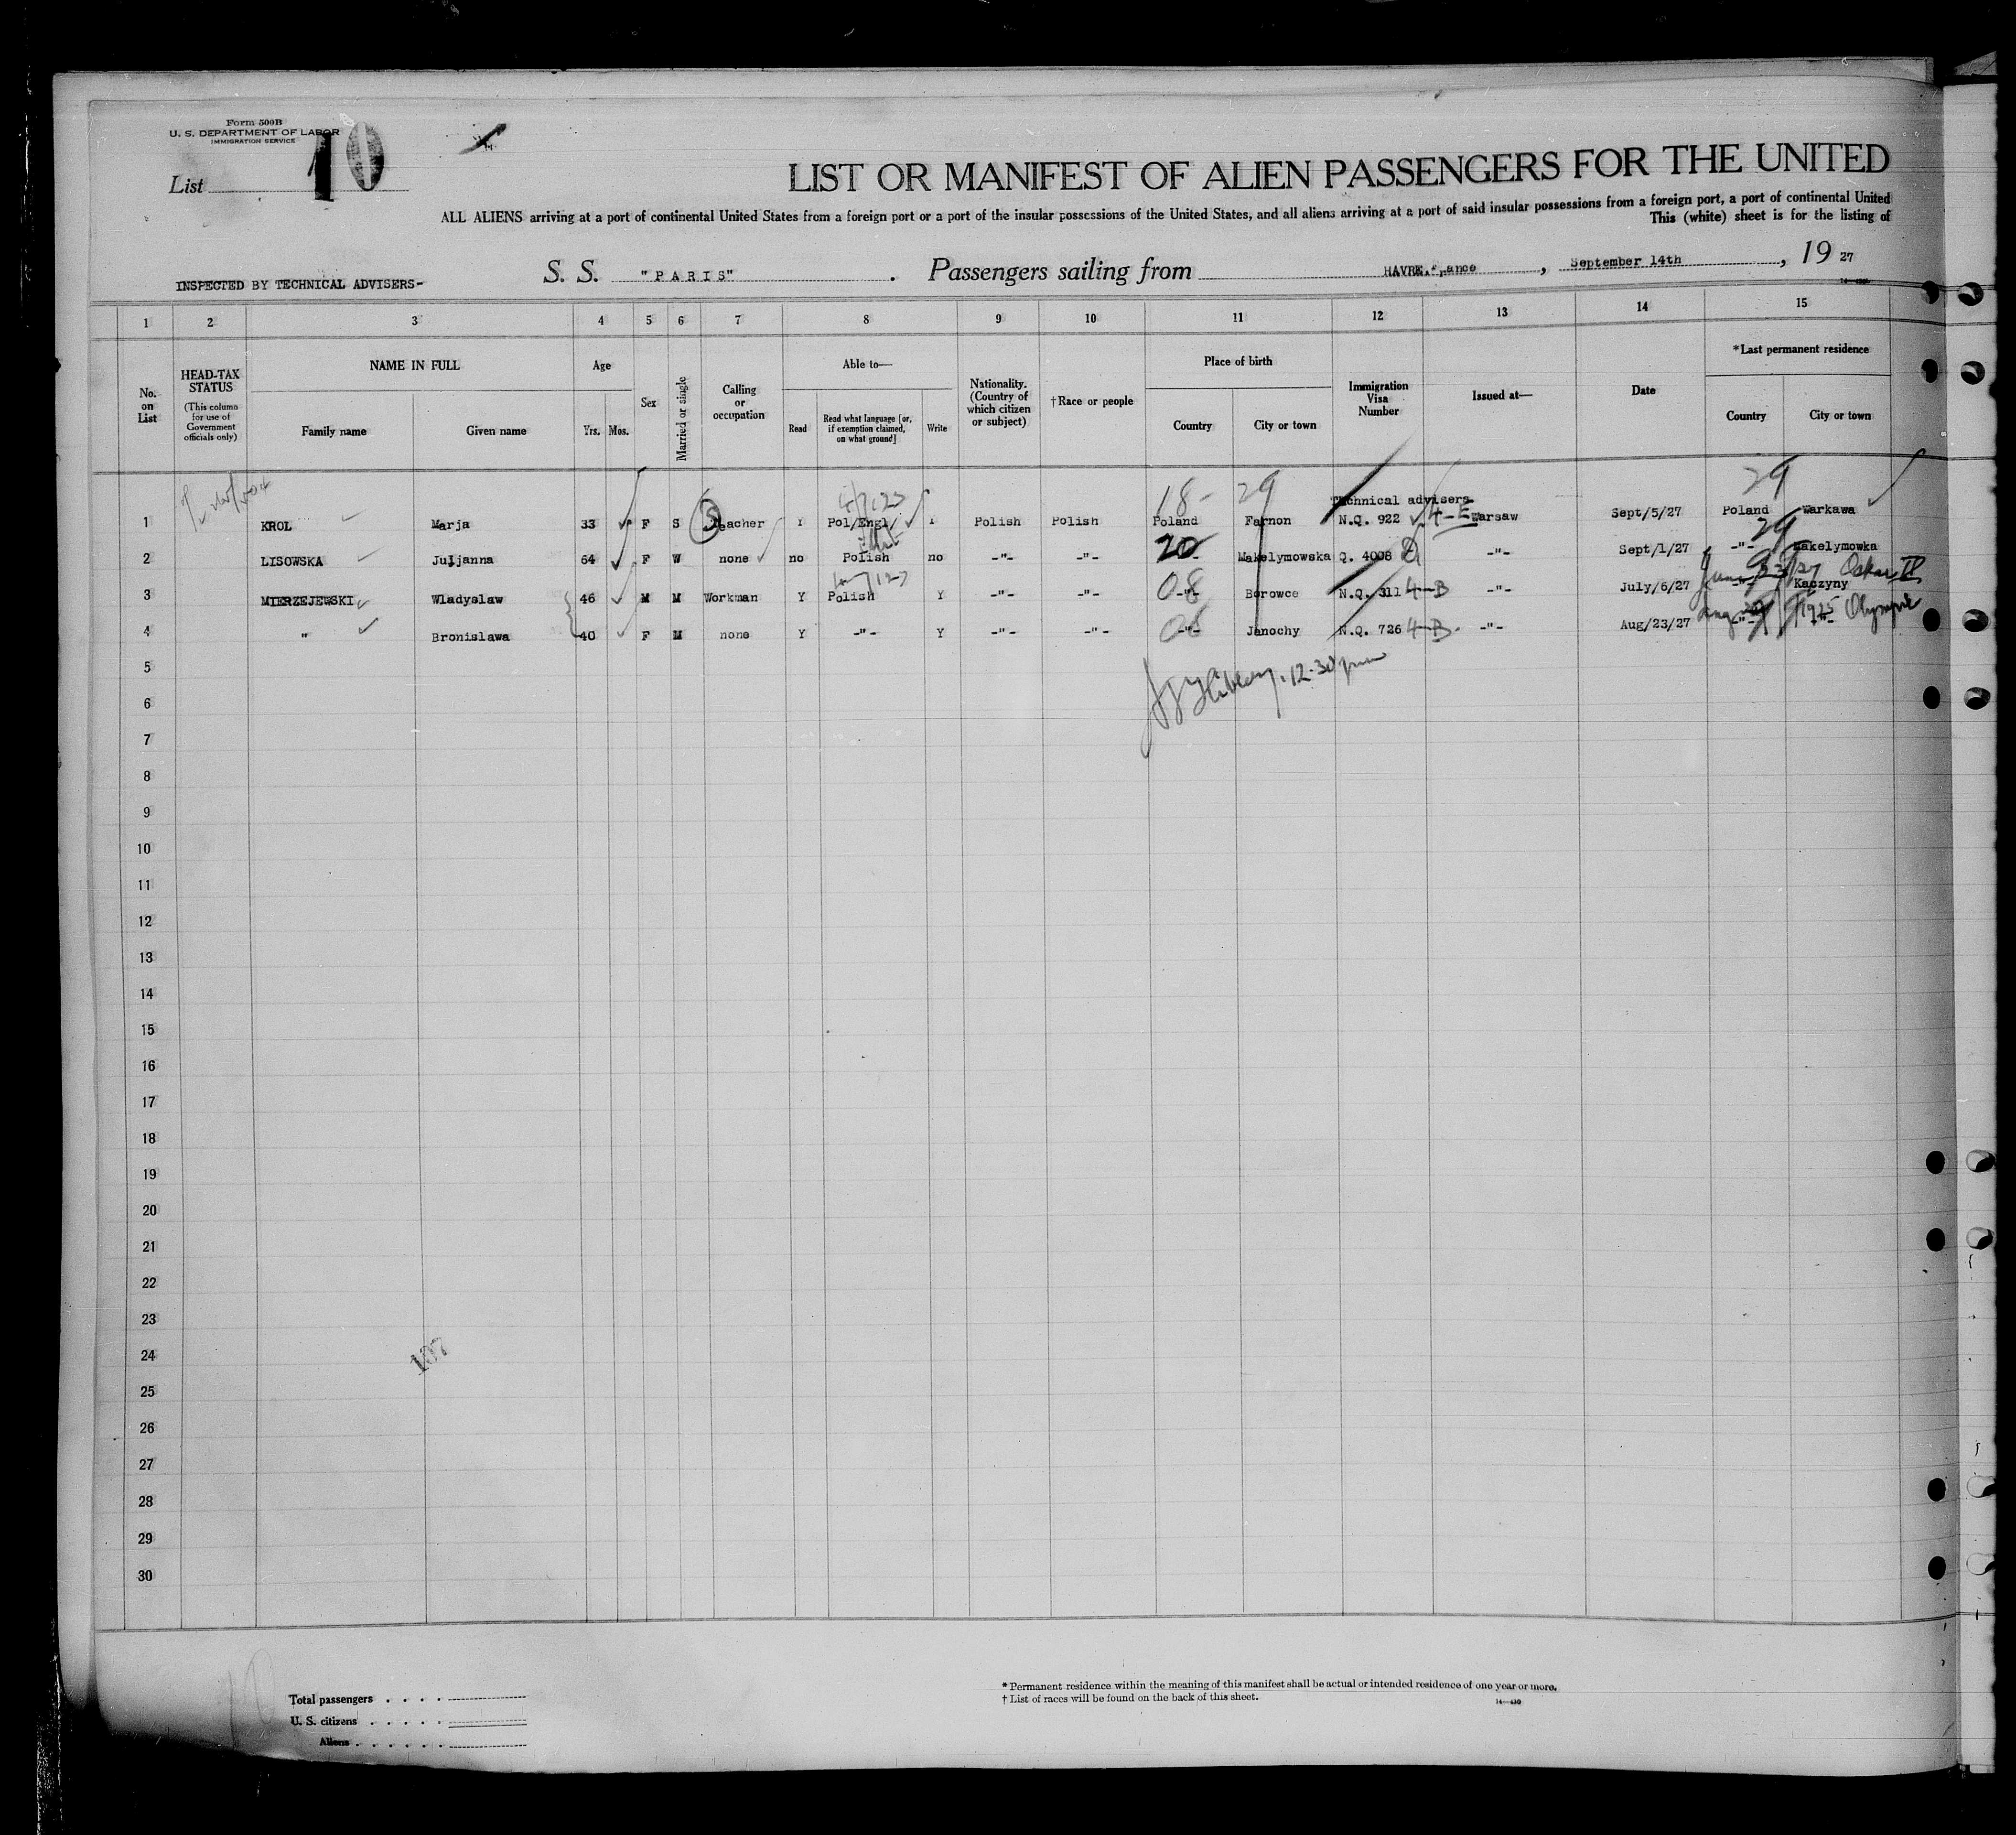 Form 500B
U. S. DEPARTMENT OF LABOR
IMMIGRATION SERVICE
List 10
LIST OR MANIFEST OF ALIEN PASSENGERS FOR THE UNITED
ALL ALIENS arriving at a port of continental United States from a foreign port or a port of the insular possessions of the United States, and all aliens arriving at a port of said insular possessions from a foreign port, a port of continental United
This (white) sheet is for the listing of
INSPECTED BY TECHNICAL ADVISERS-
S. S. "PARIS". Passengers sailing from HAVRE, September 14th, 19 27
1 2 3 4 5 6 7 8 9 10 11 12 13 14 15
No. on List
HEAD-TAX STATUS
(This column for use of Government officials only)
NAME IN FULL
Family name Given name
Age
Yrs. Mos.
Sex
Married or single
Calling or occupation
Able to—
Read
Read what language [or, if exemption claimed, on what ground]
Write
Nationality. (Country of which citizen or subject)
†Race or people
Place of birth
Country City or town
Immigration Visa Number
Issued at—
Date
*Last permanent residence
Country City or town
18- 29 29
Technical advisers
1 KROL Marja 33 F S Teacher Y Pol/Engl/ Polish Polish Poland Farnon N.Q. 922 4-E Warsaw Sept/5/27 Poland Warkawa
2 LISOWSKA Juljanna 64 F W none no Polish no -"- -"- 20 Makelymowska Q. 4008 -"- Sept/1/27 -"- 29 Makelymowka
June 27 Oskar II
3 MIERZEJEWSKI Wladyslaw 46 M M Workman Y Polish Y -"- -"- 08 -"- Borowce N.Q. 311 4-B -"- July/6/27 -"- Kaczyny
Aug 1925 Olympic
4 " Bronislawa 40 F M none Y -"- Y -"- -"- 08 -"- Janochy N.Q. 726 4-B -"- Aug/23/27 -"- -"-
12-30 pm
5
6
7
8
9
10
11
12
13
14
15
16
17
18
19
20
21
22
23
24
107
25
26
27
28
29
30
Total passengers
U. S. citizens
Aliens
*Permanent residence within the meaning of this manifest shall be actual or intended residence of one year or more.
†List of races will be found on the back of this sheet.